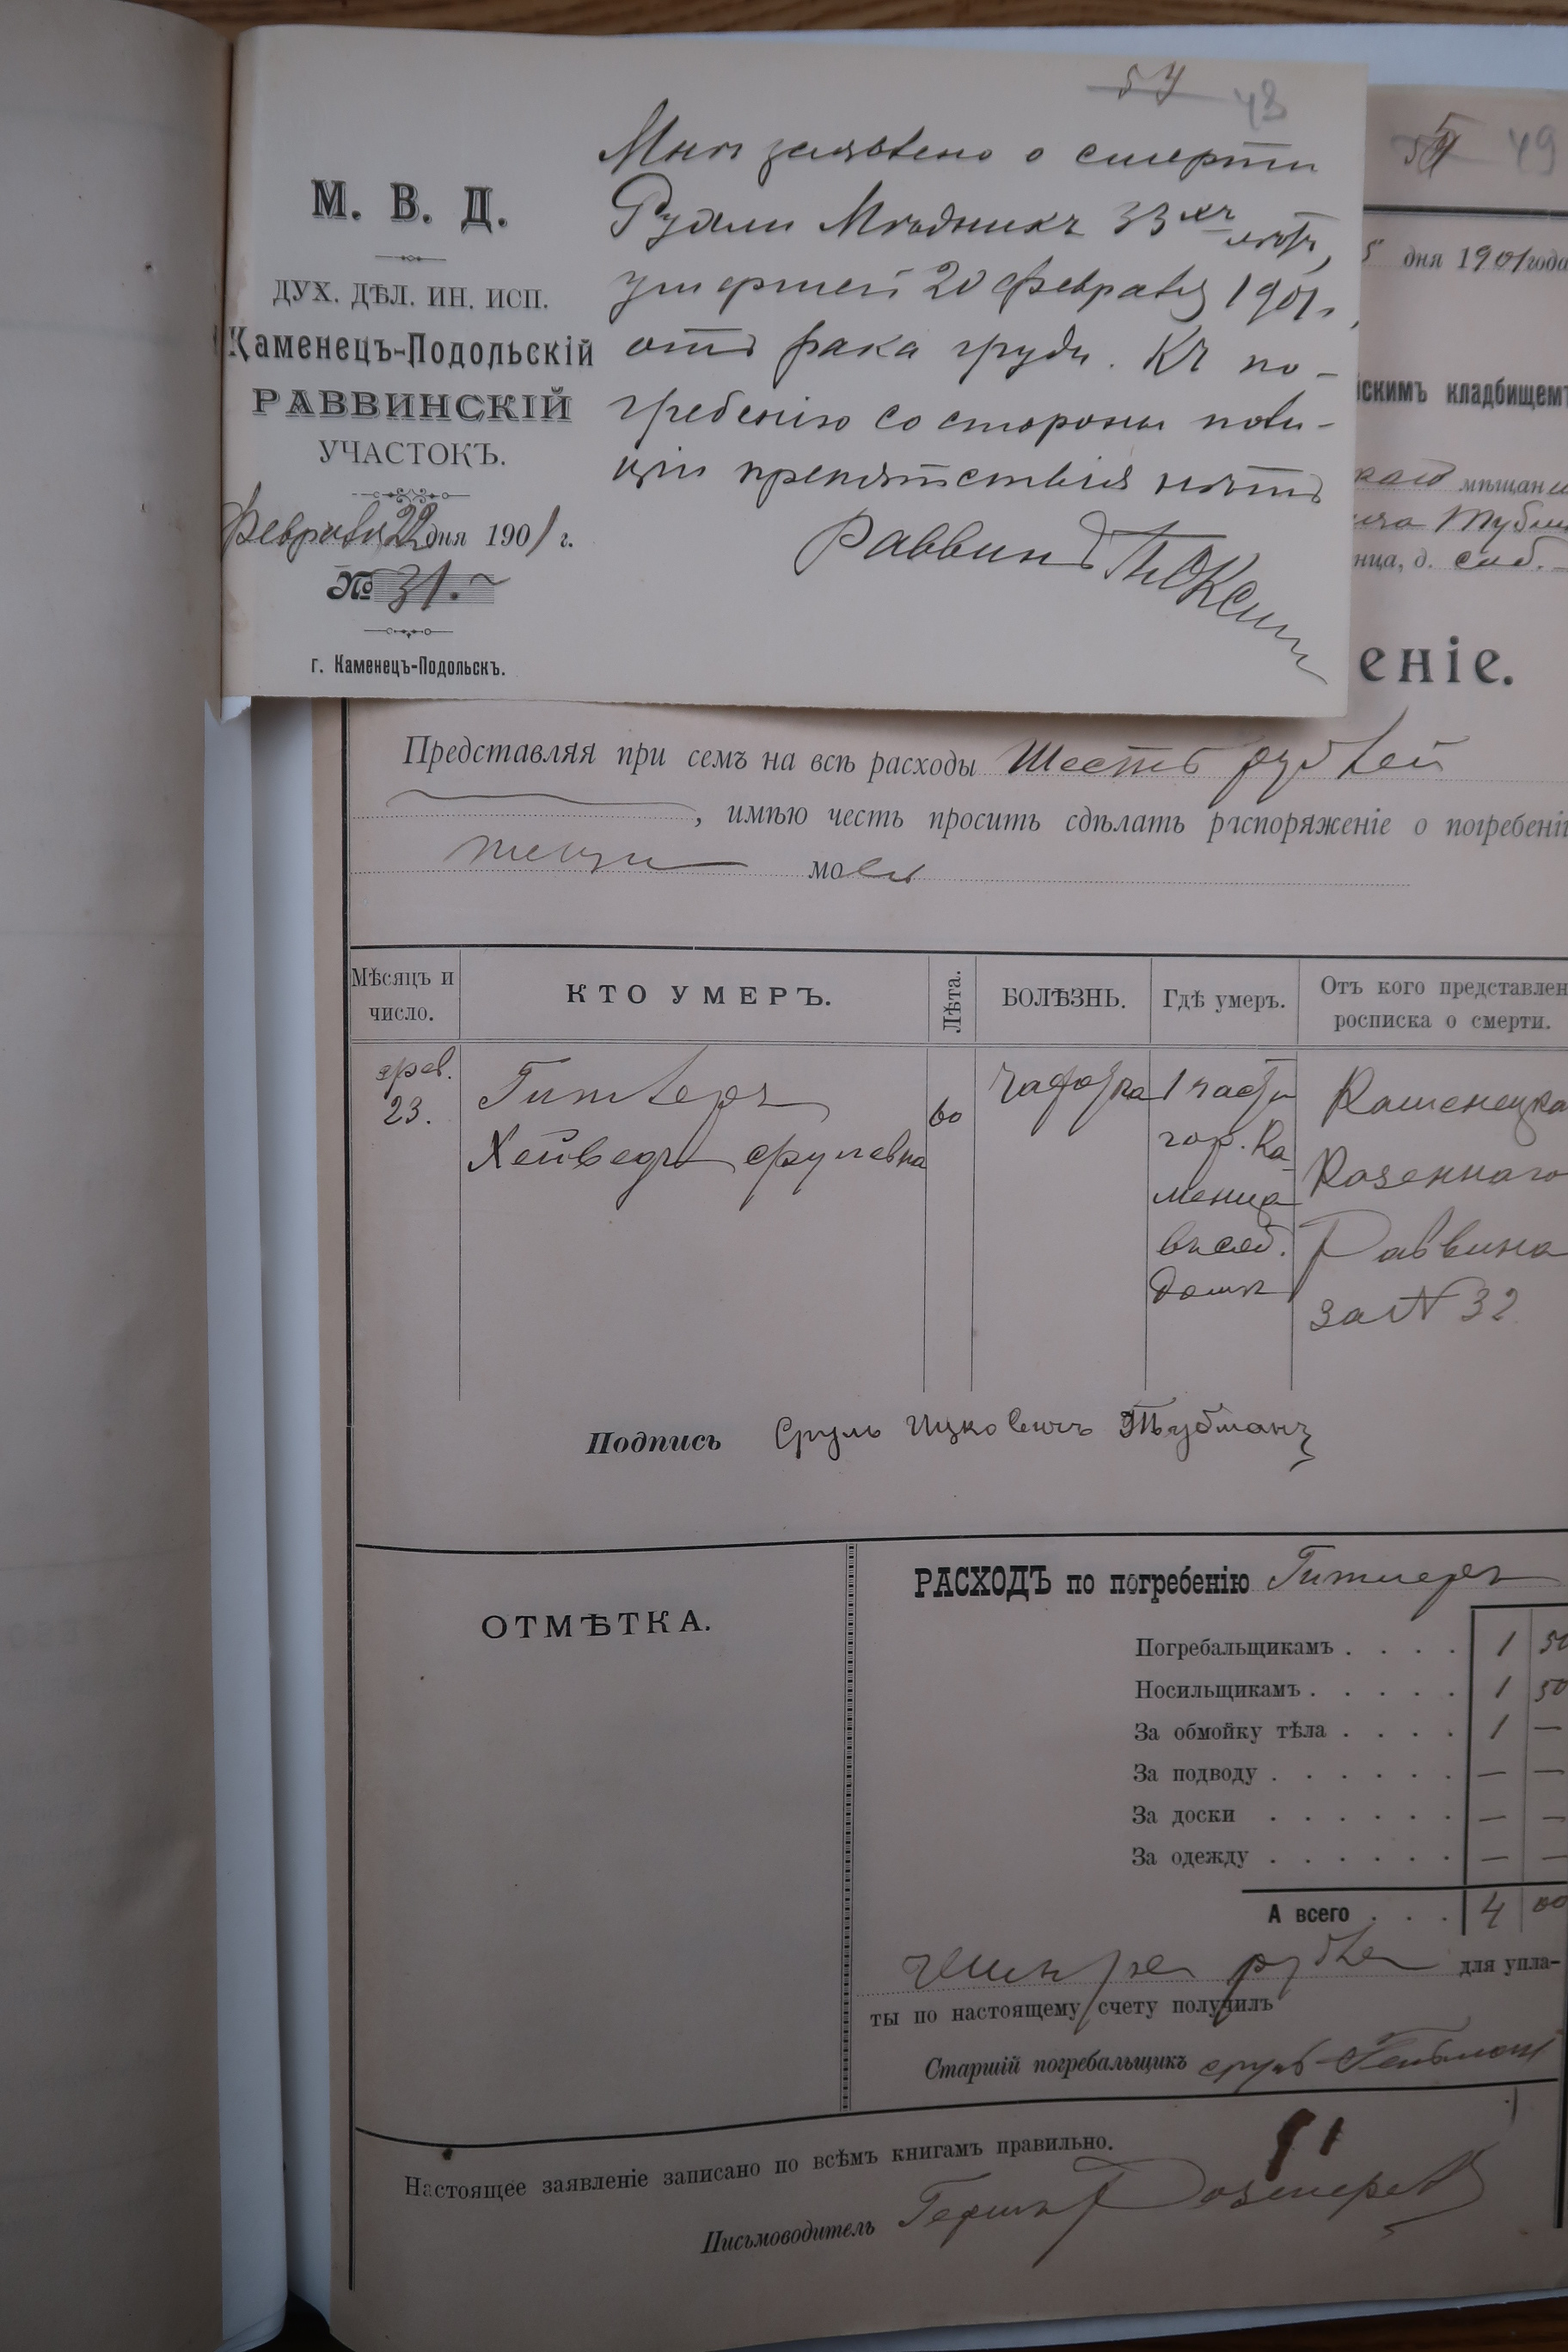 54 43
М. В. Д.
ДУХ. ДѢЛ. ИН. ИСП.
Каменецъ-Подольскій
РАВВИНСКІЙ
УЧАСТОКЪ.
Февраля 22 дня 1901 г.
№ 31.
г. Каменецъ-Подольскъ.
Мнѣ заявлено о смерти
Рухли Мѣдникъ 33хъ лѣтъ,
умершей 20 февраля 1901 г.,
отъ рака груди. Къ по-
гребенію со стороны поли-
ціи препятствія нѣтъ
Раввинъ
49
5 дня 1901 года
йскимъ кладбищемъ
каго мѣщани
ича Тубм
нца, д. соб.
еніе.
Представляя при семъ на всѣ расходы Шесть рублей
, имѣю честь просить сдѣлать распоряженіе о погребеніи
тещи моей
Мѣсяцъ и число.
КТО УМЕРЪ.
Лѣта.
БОЛѢЗНЬ.
Гдѣ умеръ.
Отъ кого представлен
росписка о смерти.
фев.
23.
Гитлеръ
Хейведъ Срулевна
60
чахотка
1 части
гор. Ка-
менца
въ соб.
домѣ
Каменецка
Казеннаго
Раввина
за № 32
Подпись Сруль Ицковичъ Тубманъ
ОТМѢТКА.
РАСХОДЪ по погребенію Гитлеръ
Погребальщикамъ . . . . 1 50
Носильщикамъ . . . . . 1 50
За обмойку тѣла . . . . 1 —
За подводу . . . . . . — —
За доски . . . . . . — —
За одежду . . . . . . — —
А всего . . . 4 00
четыре рубля для упла-
ты по настоящему счету получилъ
Старшій погребальщикъ Сруль
Настоящее заявленіе записано по всѣмъ книгамъ правильно.
Письмоводитель Гершъ